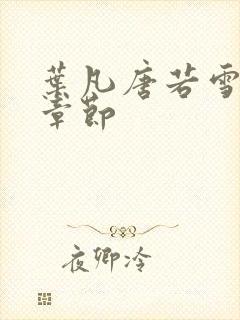 葉凡唐若雪
章節
夜卿冷